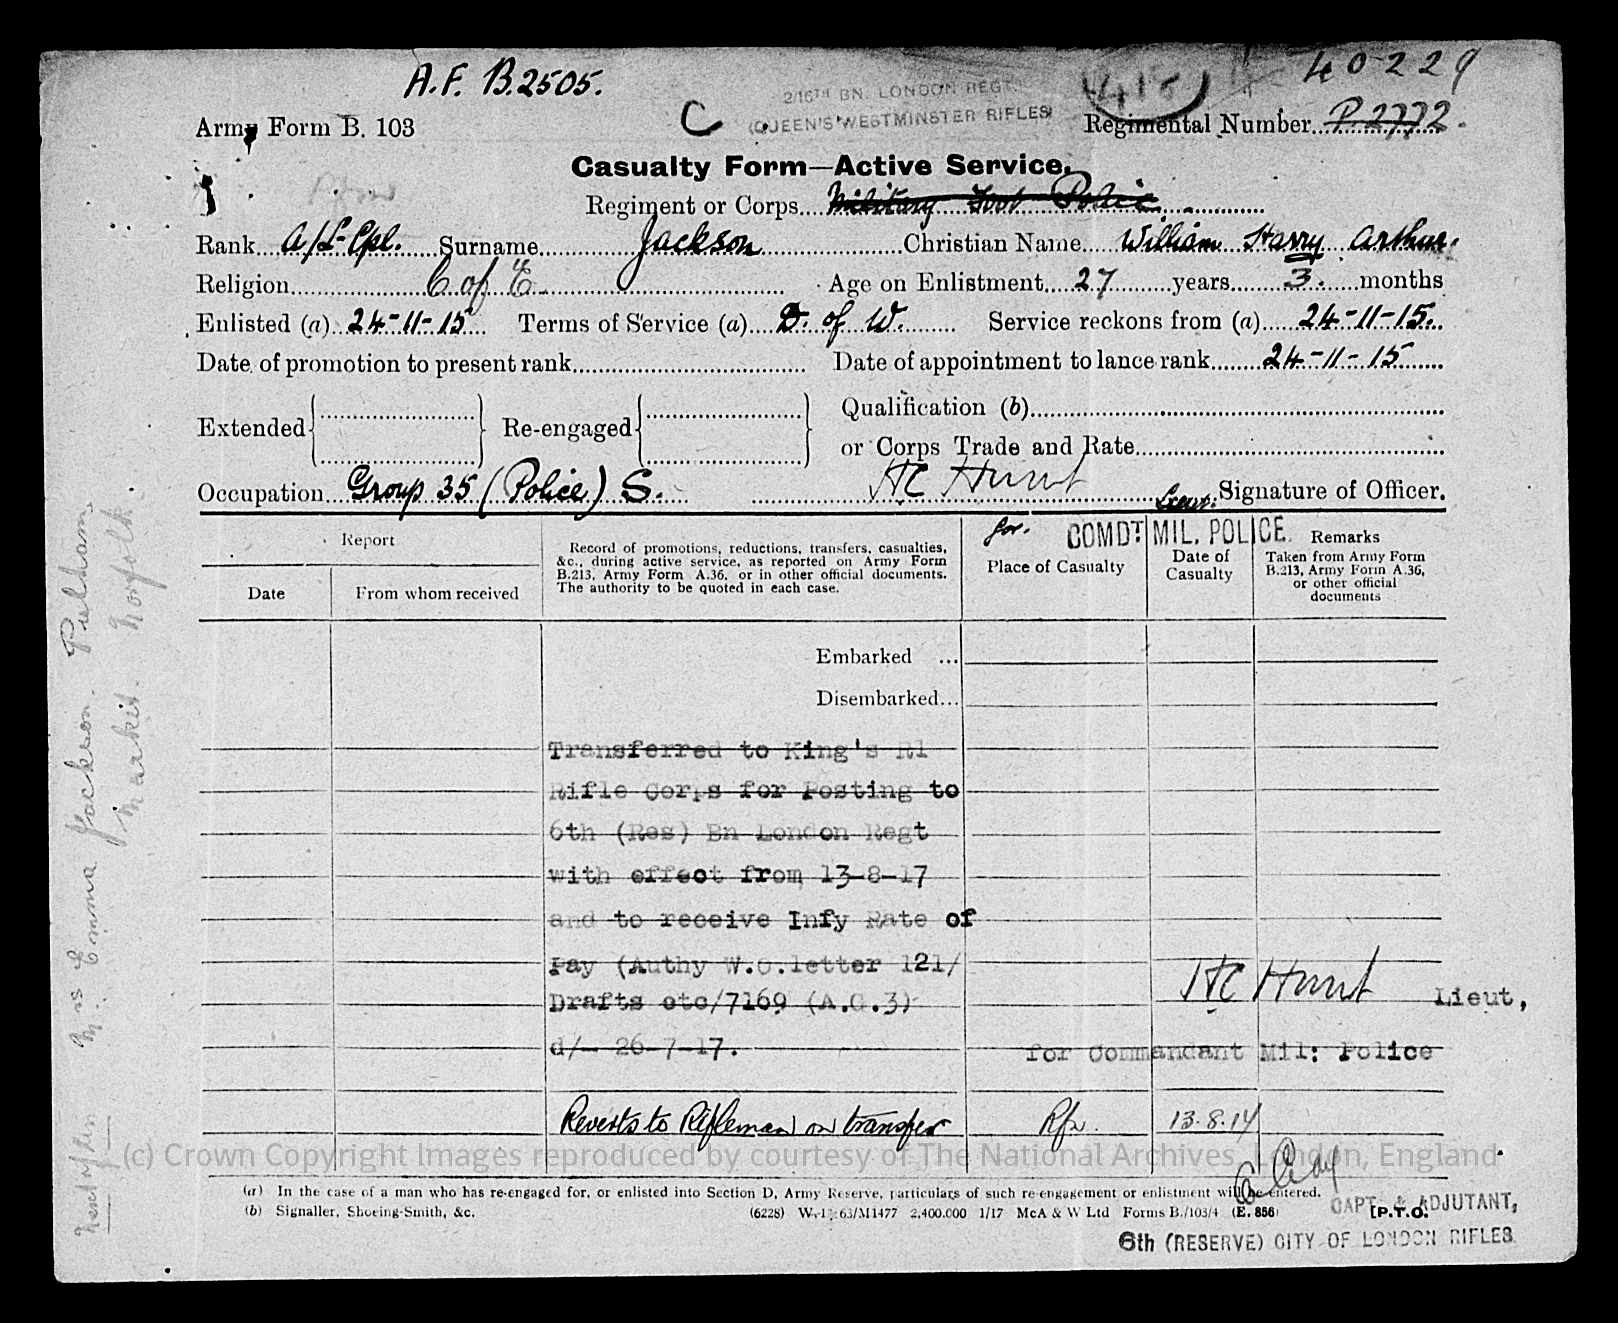 A.F. B.2505.
40229
2/16TH BN. LONDON REGT.
(QUEEN'S WESTMINSTER RIFLES)
C
Army Form B. 103
Regimental Number P.2772.
Casualty Form—Active Service.
Regiment or Corps Military Foot Police
Rank A/L-Cpl. Surname Jackson Christian Name William Harry Arthur.
Religion C of E Age on Enlistment 27 years 3. months
Enlisted (a) 24-11-15 Terms of Service (a) D. of W. Service reckons from (a) 24-11-15.
Date of promotion to present rank Date of appointment to lance rank 24-11-15
Extended Re-engaged Qualification (b)
or Corps Trade and Rate
Occupation Group 35 (Police) S. HC Hunt Lieut. Signature of Officer.
for. COMDT. MIL. POLICE.
Report
Date
From whom received
Record of promotions, reductions, transfers, casualties,
&c., during active service, as reported on Army Form
B.213, Army Form A.36, or in other official documents.
The authority to be quoted in each case.
Place of Casualty
Date of
Casualty
Remarks
Taken from Army Form
B.213, Army Form A.36,
or other official
documents
Embarked ...
Disembarked...
Transferred to King's Rl
Rifle Corps for Posting to
6th (Res) Bn London Regt
with effect from 13-8-17
and to receive Infy Rate of
Pay (Authy W.O.letter 121/
Drafts etc/7169 (A.G.3)
d/- 26-7-17.
HC Hunt Lieut,
for Commandant Mil: Police
Reverts to Rifleman on transfer Rfn. 13.8.17
(c) Crown Copyright Images reproduced by courtesy of The National Archives, London, England
(a) In the case of a man who has re-engaged for, or enlisted into Section D, Army Reserve, particulars of such re-engagement or enlistment will be entered.
(b) Signaller, Shoeing-Smith, &c.
(6228) W.1 63/M1477 2,400,000 1/17 McA & W Ltd Forms B./103/4 (E. 856)
[P.T.O.
CAPT. & ADJUTANT,
6th (RESERVE) CITY OF LONDON RIFLES
Next of kin Mrs Emma Jackson. Pulham
Market. Norfolk.